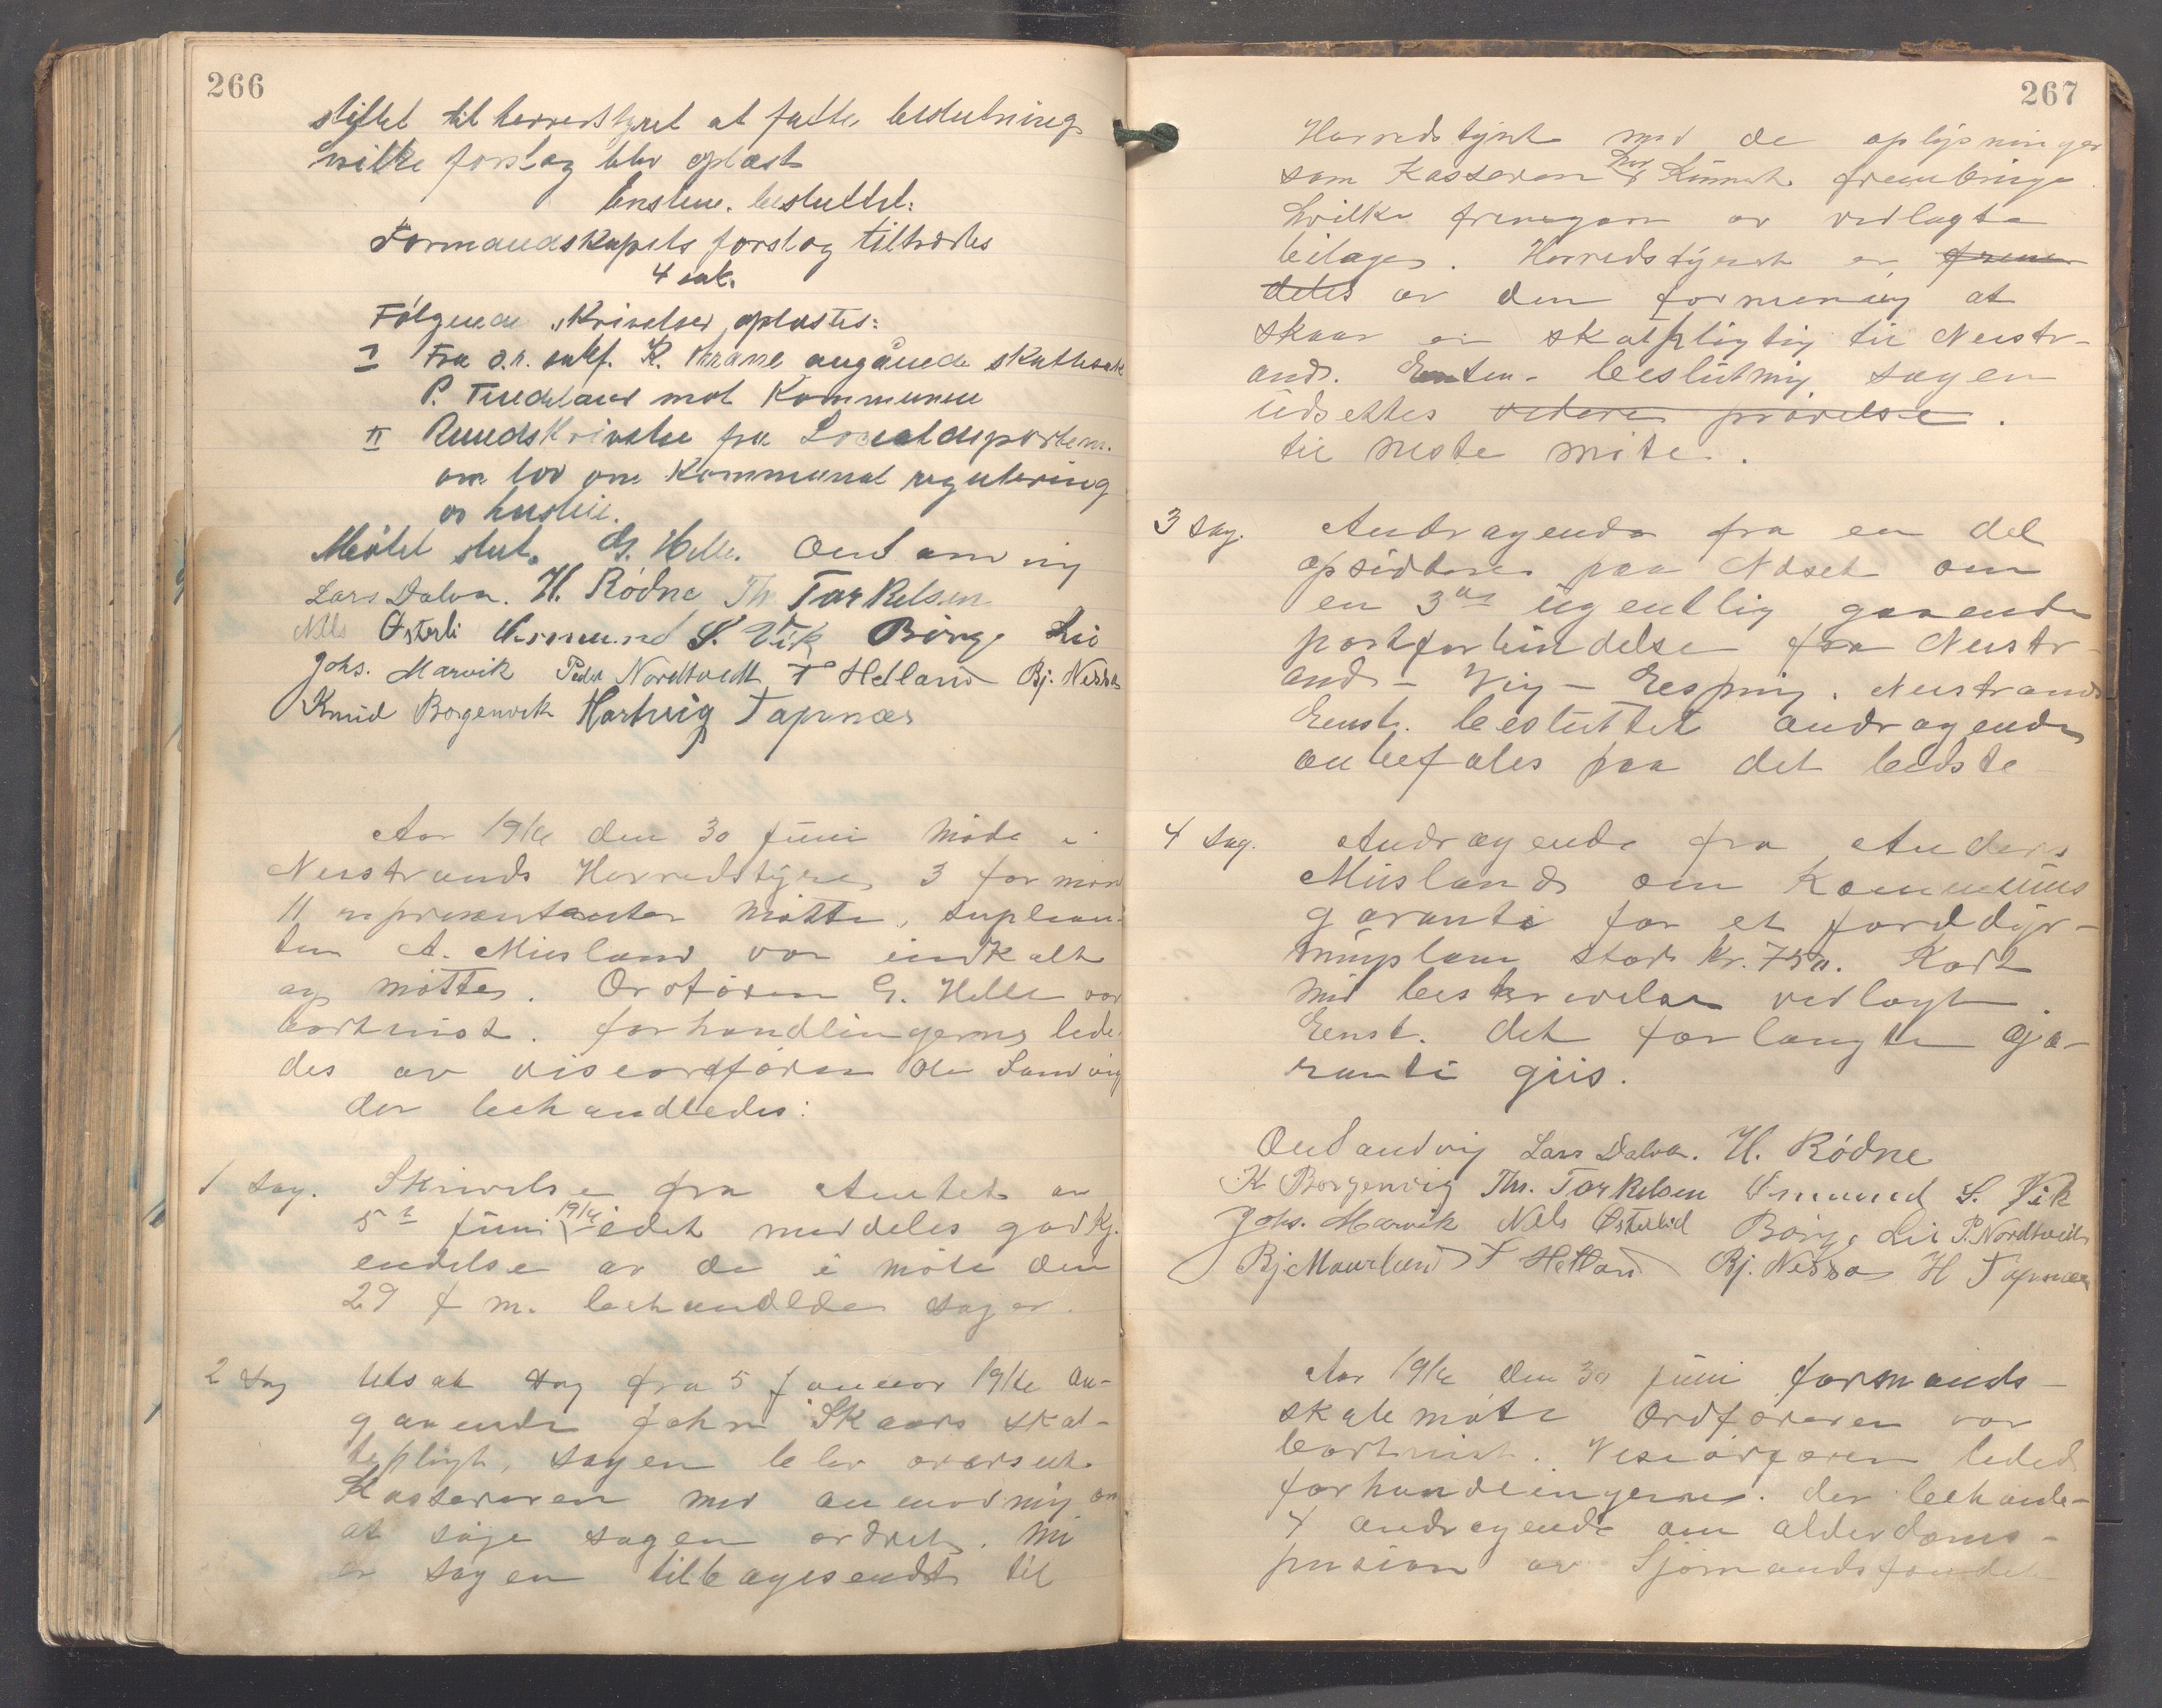 266
stillet til herredstyret at fatte beslutning
vilke forslag blev oplæst
Enstem. besluttet:
Formandskapets forslag tiltrædes
4 sak.
Følgende skrivelser oplæstes:
I Fra o.r. sakf. K. Krane angående skattesak
P. Tindeland mot Kommunen
II Rundskrivelse fra Socialdepartem.
om lov om Kommunal regulering
av husleie.
Møtet slut. G. Helle. Ole Sandvig
Lars Dalva. H. Rødne Th Torkelsen
Nils Østerli Osmund S. Vik Børge Lie
Johs. Marvik Peder Nordtvedt T Helland Bj. Nessa
Knud Borgenvik Hartvig Tapnæs
Aar 1916 den 30 Juni Møde i
Nerstrands Herredstyre, 3 formæn
11 representanter møtte, suplean-
ten A. Musland var indkalt
og møttes. Ordføren G. Helle var
bortreist. forhandlingerne lede-
des av viseordføren Ole Sandvig
der behandledes:
1 Sag. Skrivelse fra Amtet av
5te Juni 1916 idet meddeles godkj-
endelse av de i møte den
29 f m. behandlede sager.
2 Sag Utsat Sag fra 5 Januar 1916 an-
gaaende John Skaars skat-
tepligt, sagen blev oversent
Kassereren med anmodning om
at søge sagen ordnet. Nu
er sagen tilbagesendt til
267
Herredstyret med de oplysninger
som Kassereren har kunnet frembringe.
hvilke fremgaar av vedlagte
bilager. Herredstyret er frem
deles av den formening at
Skaar er skatpligtig til Nerstr-
and. Enstem. beslutning sagen
udsettes videre prøvelse.
til neste møte.
3 Sag. Andragende fra en del
opsiddere paa Næset om
en 3de ugentlig gaaende
postforbindelse fra Nerstr-
and - Vig - Espvig. Nerstrand
Enst. besluttet andragende
anbefales paa det bedste
4 Sag. Andragende fra Anders
Musland om Kommuns
garanti for et jorddyr-
kningslaan stort kr. 750. Kart
med beskrivelse vedlagt
Enst. det forlangte ga-
ranti giis.
Ole Sandvig Lars Dalva. H. Rødne
K Borgenvig Th. Torkelsen Osmund S. Vik
Johs. Marvik Nils Østerlid Børge Lie P. Nordtvedt
Bj Mourland T Helland Bj. Nessa H Tapnæs
Aar 1916 den 30 Juni formands-
skabsmøte Ordføreren var
bortreist. Viseorføren lededе
forhandlingerne. der behandl-
4 andragende om alderdoms-
pension av Sjømandsfondet